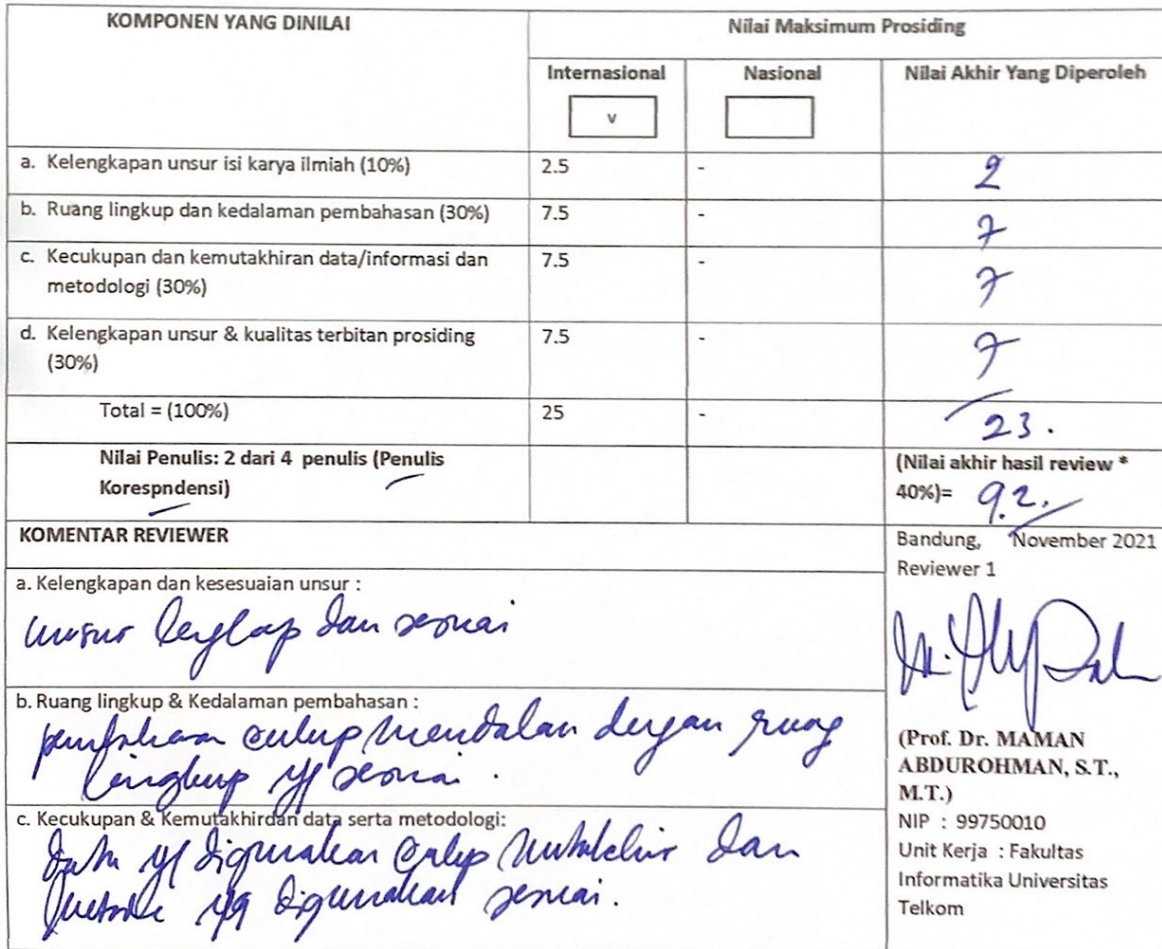 KOMPONEN YANG DINILAI
Nilai Maksimum Prosiding
Internasional
Nasional
Nilai Akhir Yang Diperoleh
v
a. Kelengkapan unsur isi karya ilmiah (10%) 2.5 - 2
b. Ruang lingkup dan kedalaman pembahasan (30%) 7.5 - 7
c. Kecukupan dan kemutakhiran data/informasi dan 7.5 - 7
metodologi (30%)
d. Kelengkapan unsur & kualitas terbitan prosiding 7.5 - 7
(30%)
Total = (100%) 25 - 23.
Nilai Penulis: 2 dari 4 penulis (Penulis
Korespndensi)
(Nilai akhir hasil review *
40%)= 9.2.
KOMENTAR REVIEWER
a. Kelengkapan dan kesesuaian unsur :
unsur lengkap dan sesuai
b. Ruang lingkup & Kedalaman pembahasan :
pembahasan cukup mendalam dengan ruang
lingkup yg sesuai.
c. Kecukupan & Kemutakhirdan data serta metodologi:
data yg digunakan cukup mutakhir dan
metode yg digunakan sesuai.
Bandung, November 2021
Reviewer 1
(Prof. Dr. MAMAN
ABDUROHMAN, S.T.,
M.T.)
NIP : 99750010
Unit Kerja : Fakultas
Informatika Universitas
Telkom